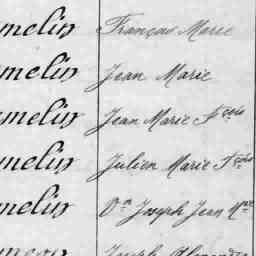 melin François Marie
melin Jean Marie
melin Jean Marie Fçois
melin Julien Marie Fçois
melin Vn Joseph Jean Mie
Joseph